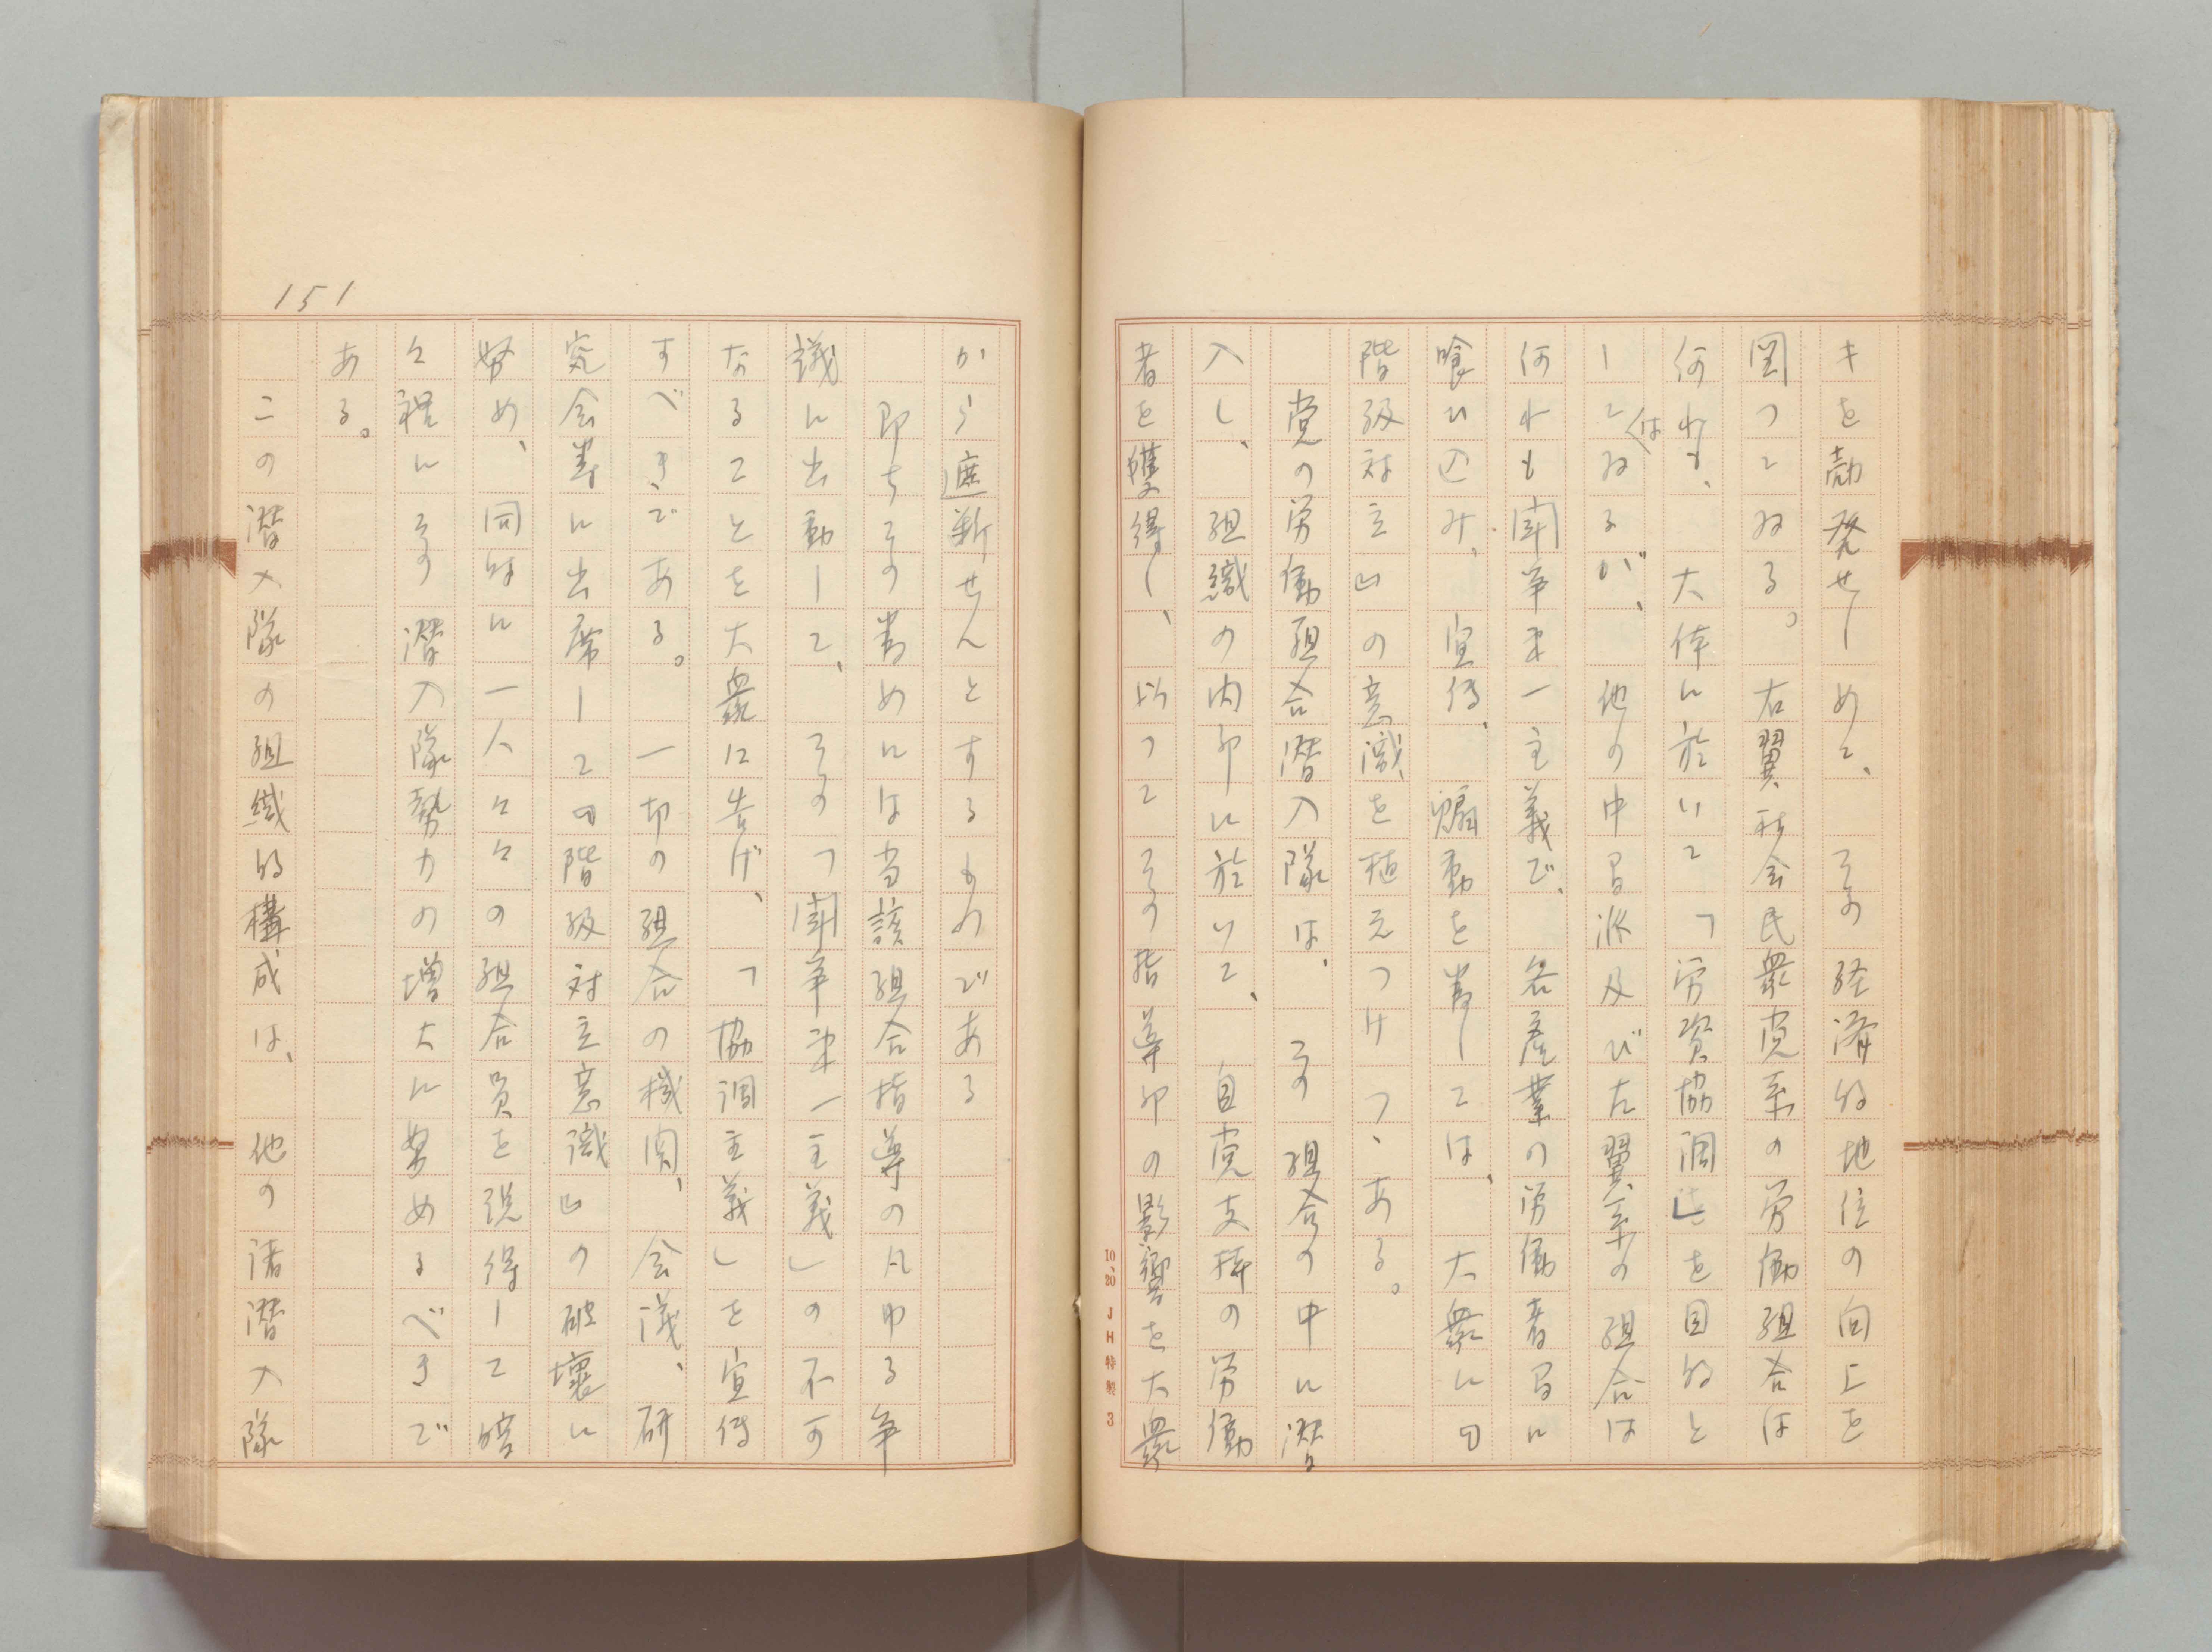 キを勃発せしめて、その経済的地位の向上を
図つてゐる。右翼社会民衆党系の労働組合は
何れも、大体に於いて「労資協調」を目的と
は
してゐるが、他の中間派及び左翼系の組合は
何れも闘争第一主義で、各産業の労働者間に
喰ひ込み、宣伝、煽動を為しては、大衆に『
階級対立』の意識を植えつけつゝある。
党の労働組合潜入隊は、その組合の中に潜
入し、組織の内部に於いて、自党支持の労働
者を獲得し、以つてその指導部の影響を大衆
10.20 JH特製 3
から遮断せんとするものである
即ちその為めには当該組合指導の凡ゆる争
議に出動して、その「闘争第一主義」の不可
なることを大衆に告げ、「協調主義」を宣伝
すべきである。一切の組合の機関、会議、研
究会等に出席して『階級対立意識』の破壊に
努め、同時に一人々々の組合員を説得して暗
々裡にその潜入隊勢力の増大に努めるべきで
ある。
この潜入隊の組織的構成は、他の諸潜入隊
151